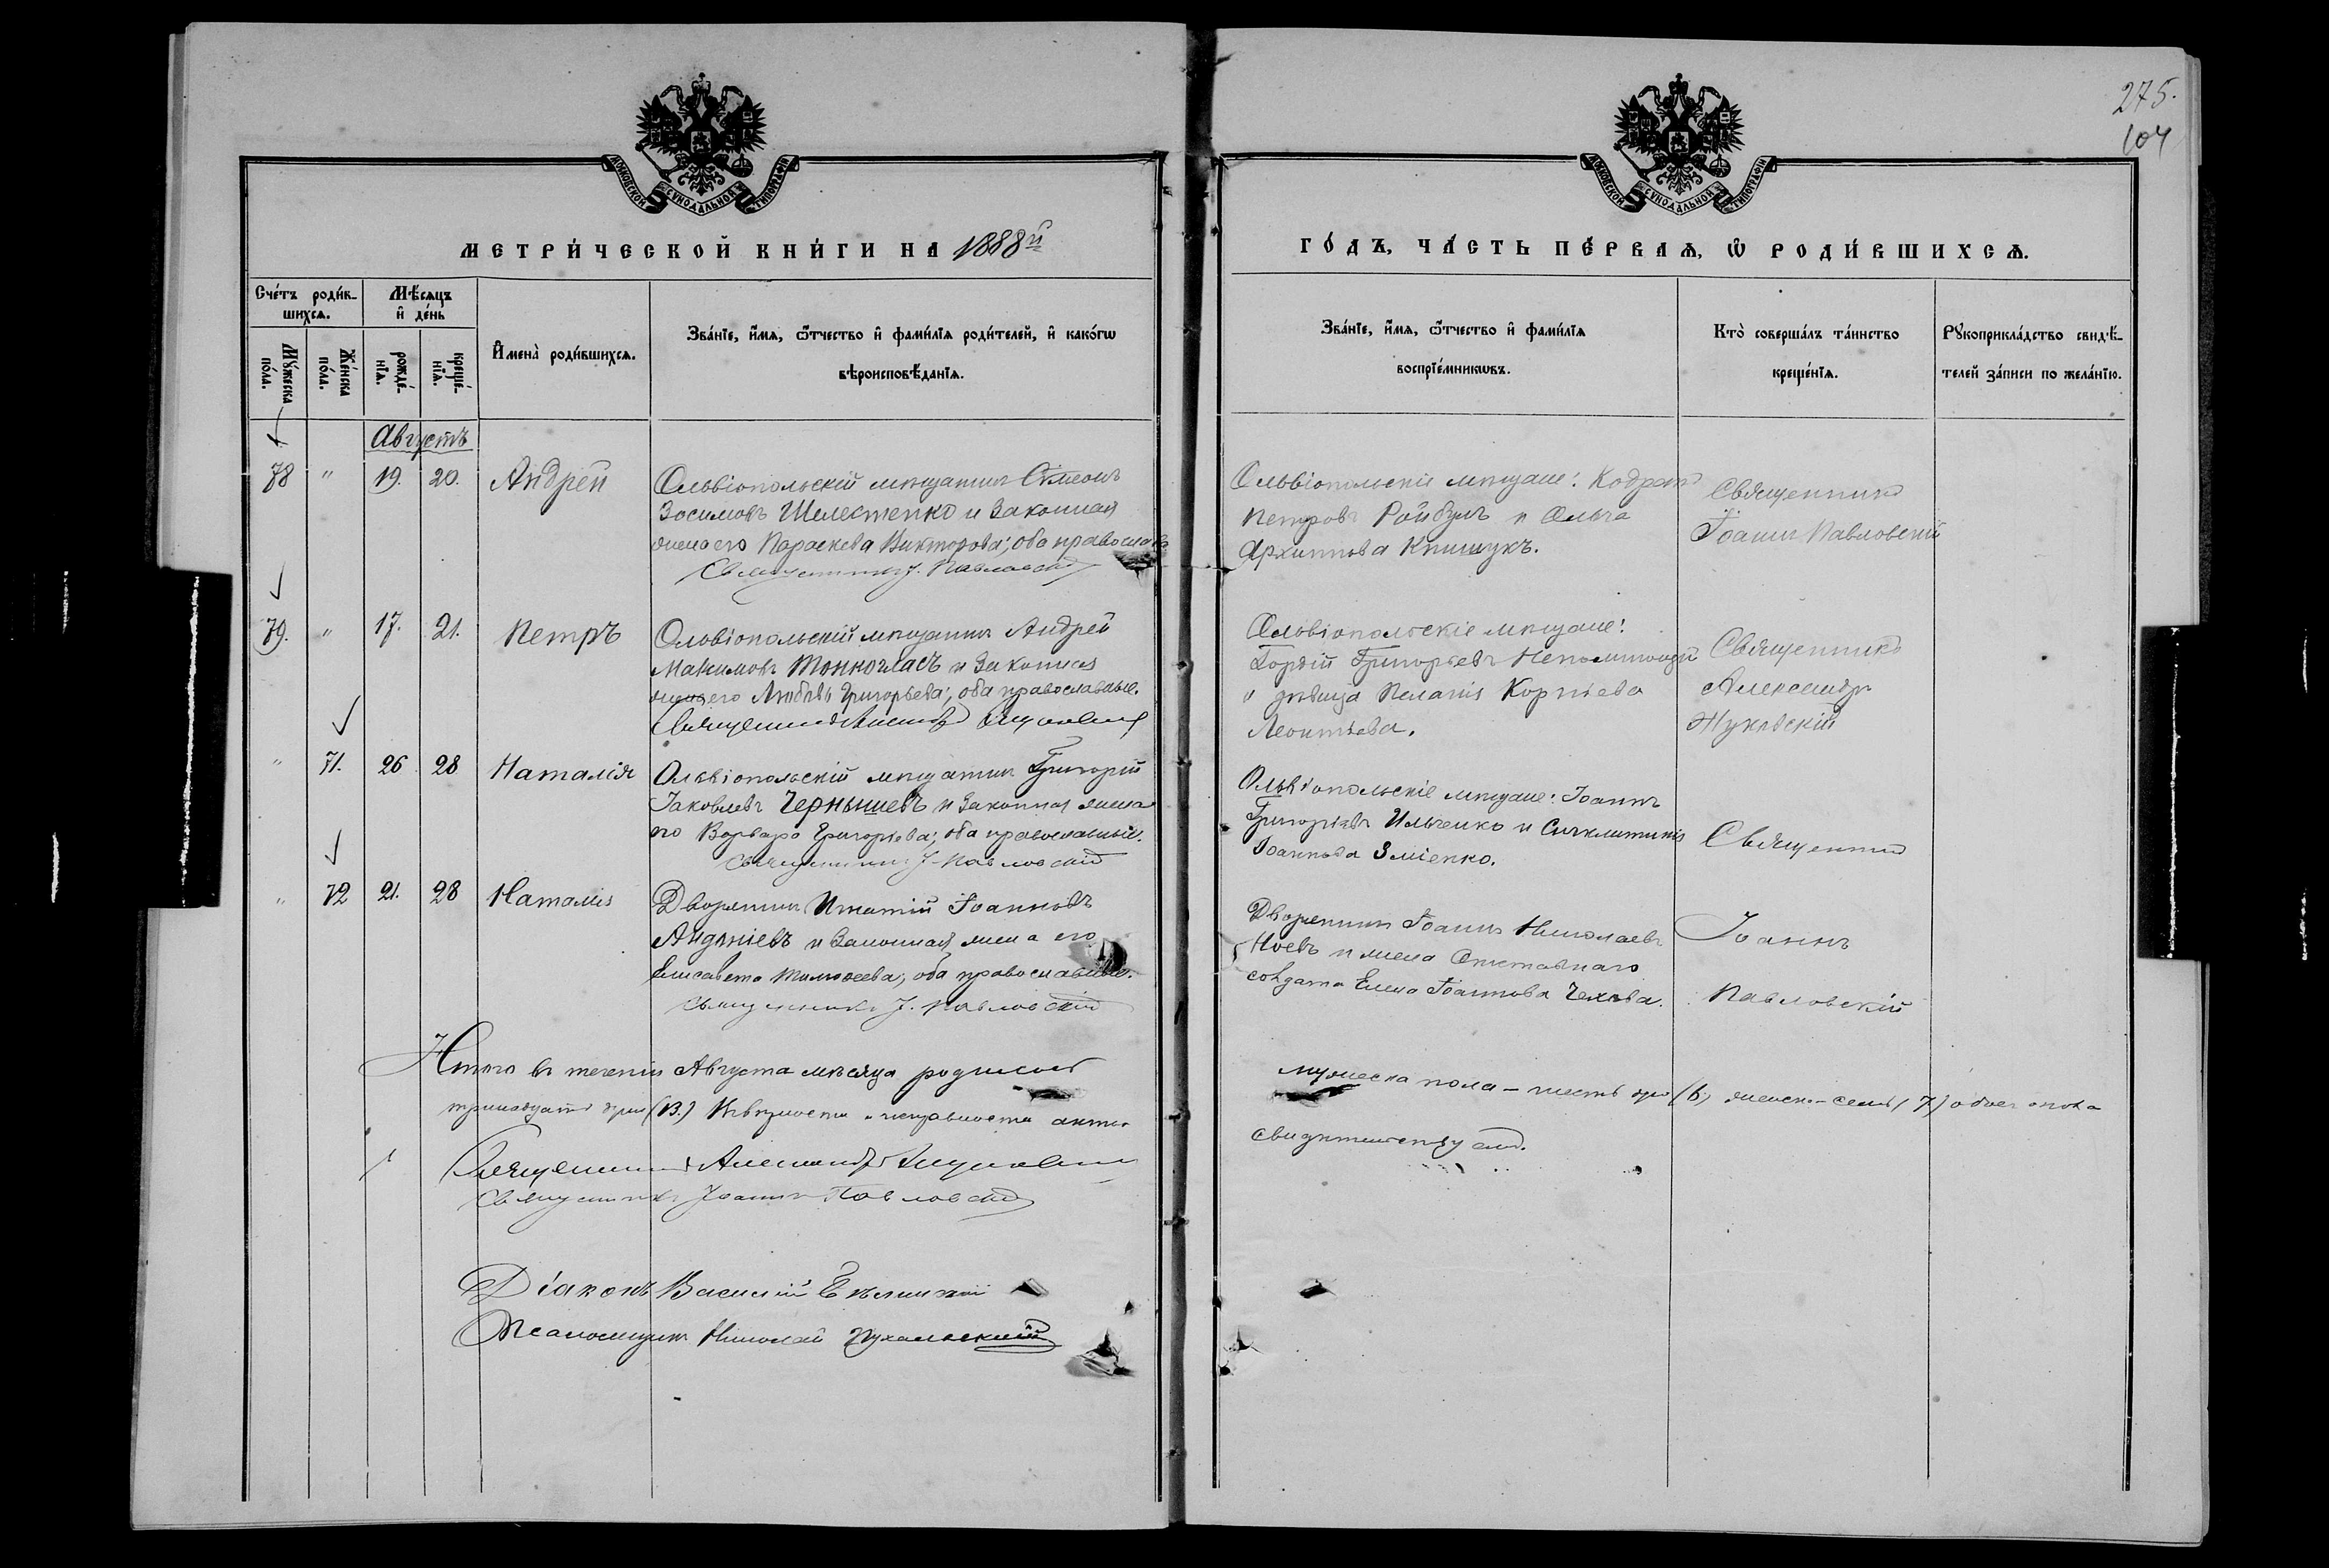 275.
104
МОСКОВСКОЙ СѴНОДАЛЬНОЙ ТИПОГРАФІИ
МОСКОВСКОЙ СѴНОДАЛЬНОЙ ТИПОГРАФІИ
МЕТРИ́ЧЕСКОЙ КНИ́ГИ НА 1888й
ГО́ДЪ, ЧА́СТЬ ПЕ́РВАѦ, Ѡ҆ РОДИ́ВШИХСѦ.
Сче́тъ роди́в-
шихсѧ.
Мѣ́сѧцъ
и҆ де́нь
Мꙋ́жеска
по́ла.
Же́нска
по́ла.
рожде́-
нїѧ.
креще́-
нїѧ.
И҆мена̀ роди́вшихсѧ.
Зва́нїе, и҆́мѧ, ѻ҆́тчество и҆ фами́лїѧ роди́телей, и҆ како́гѡ
вѣроисповѣ́данїѧ.
Зва́нїе, и҆́мѧ, ѻ҆́тчество и҆ фами́лїѧ
воспрїе́мникѡвъ.
Кто̀ соверша́лъ та́инство
креще́нїѧ.
Рꙋкоприкла́дство свидѣ́-
телей за́писи по жела́нїю.
Августъ
78 " 19. 20. Андрей
Ольвіопольскій мѣщанинъ Симеонъ
Зосимовъ Шелестенко и законная
жена его Параскева Викторова; оба православ
Священникъ І. Павловскій
Ольвіопольскіе мѣщане: Кодратъ
Петровъ Ройбулъ и Ольга
Архиппова Книшукъ.
Священникъ
Іоаннъ Павловскій
79. " 17. 21. Петръ
Ольвіопольскій мѣщанинъ Андрей
Максимовъ Тонкогласъ и законная
жена его Любовь Григорьева; оба православные.
Священникъ Александръ
Ольвіопольскіе мѣщане:
Гордій Григорьевъ Непомнющій
и дѣвица Пелагія Корніева
Леонтьева.
Священникъ
Александръ
Жуковскій
" 71. 26 28 Наталія
Ольвіопольскій мѣщанинъ Григорій
Іаковлевъ Чернышевъ и законная жена
его Варвара Григорьева; оба православные.
Священникъ І. Павловскій
Ольвіопольскіе мѣщане: Іоаннъ
Григорьевъ Ильченко и Сигклитикія
Іоаннова Зміенко.
Священникъ
" 72 21. 28 Наталія
Дворянинъ Игнатій Іоанновъ
Андрніевъ и законная жена его
Елисавета Тимофеева; оба православные.
Священникъ І. Павловскій
Дворянинъ Іоаннъ Николаевъ
Ноевъ и жена отставнаго
солдата Елена Іоаннова Чехова.
Іоаннъ
Павловскій
Итого въ теченіи Августа мѣсяца родилось
мужеска пола — шесть душ (6) женск. — семь (7) обоего пола
тринадцать душъ (13.) Къ вѣрности и исправности актов
свидѣтельствуемъ.
Священникъ Александръ
Священникъ Іоаннъ Павловскій
Діаконъ Василій
Псаломщикъ Николай Пухальскій